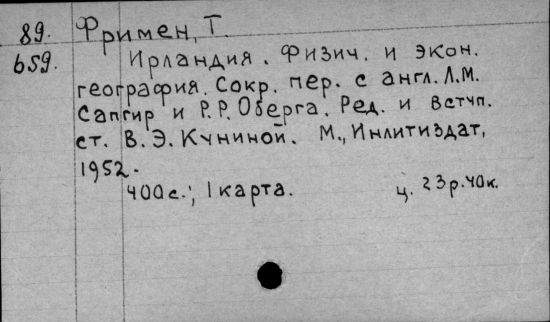 89. Фримен, Т.
659. Ирландия. Физич. и экон.
география. Сокр. пер. с англ. Л.М.
Сапгир и Р.Р. Оберга. Ред. и вступ.
ст. В.Э. Куниной. М., Инлитиздат,
1952.
400 с.; 1 карта. ц. 23р.40к.